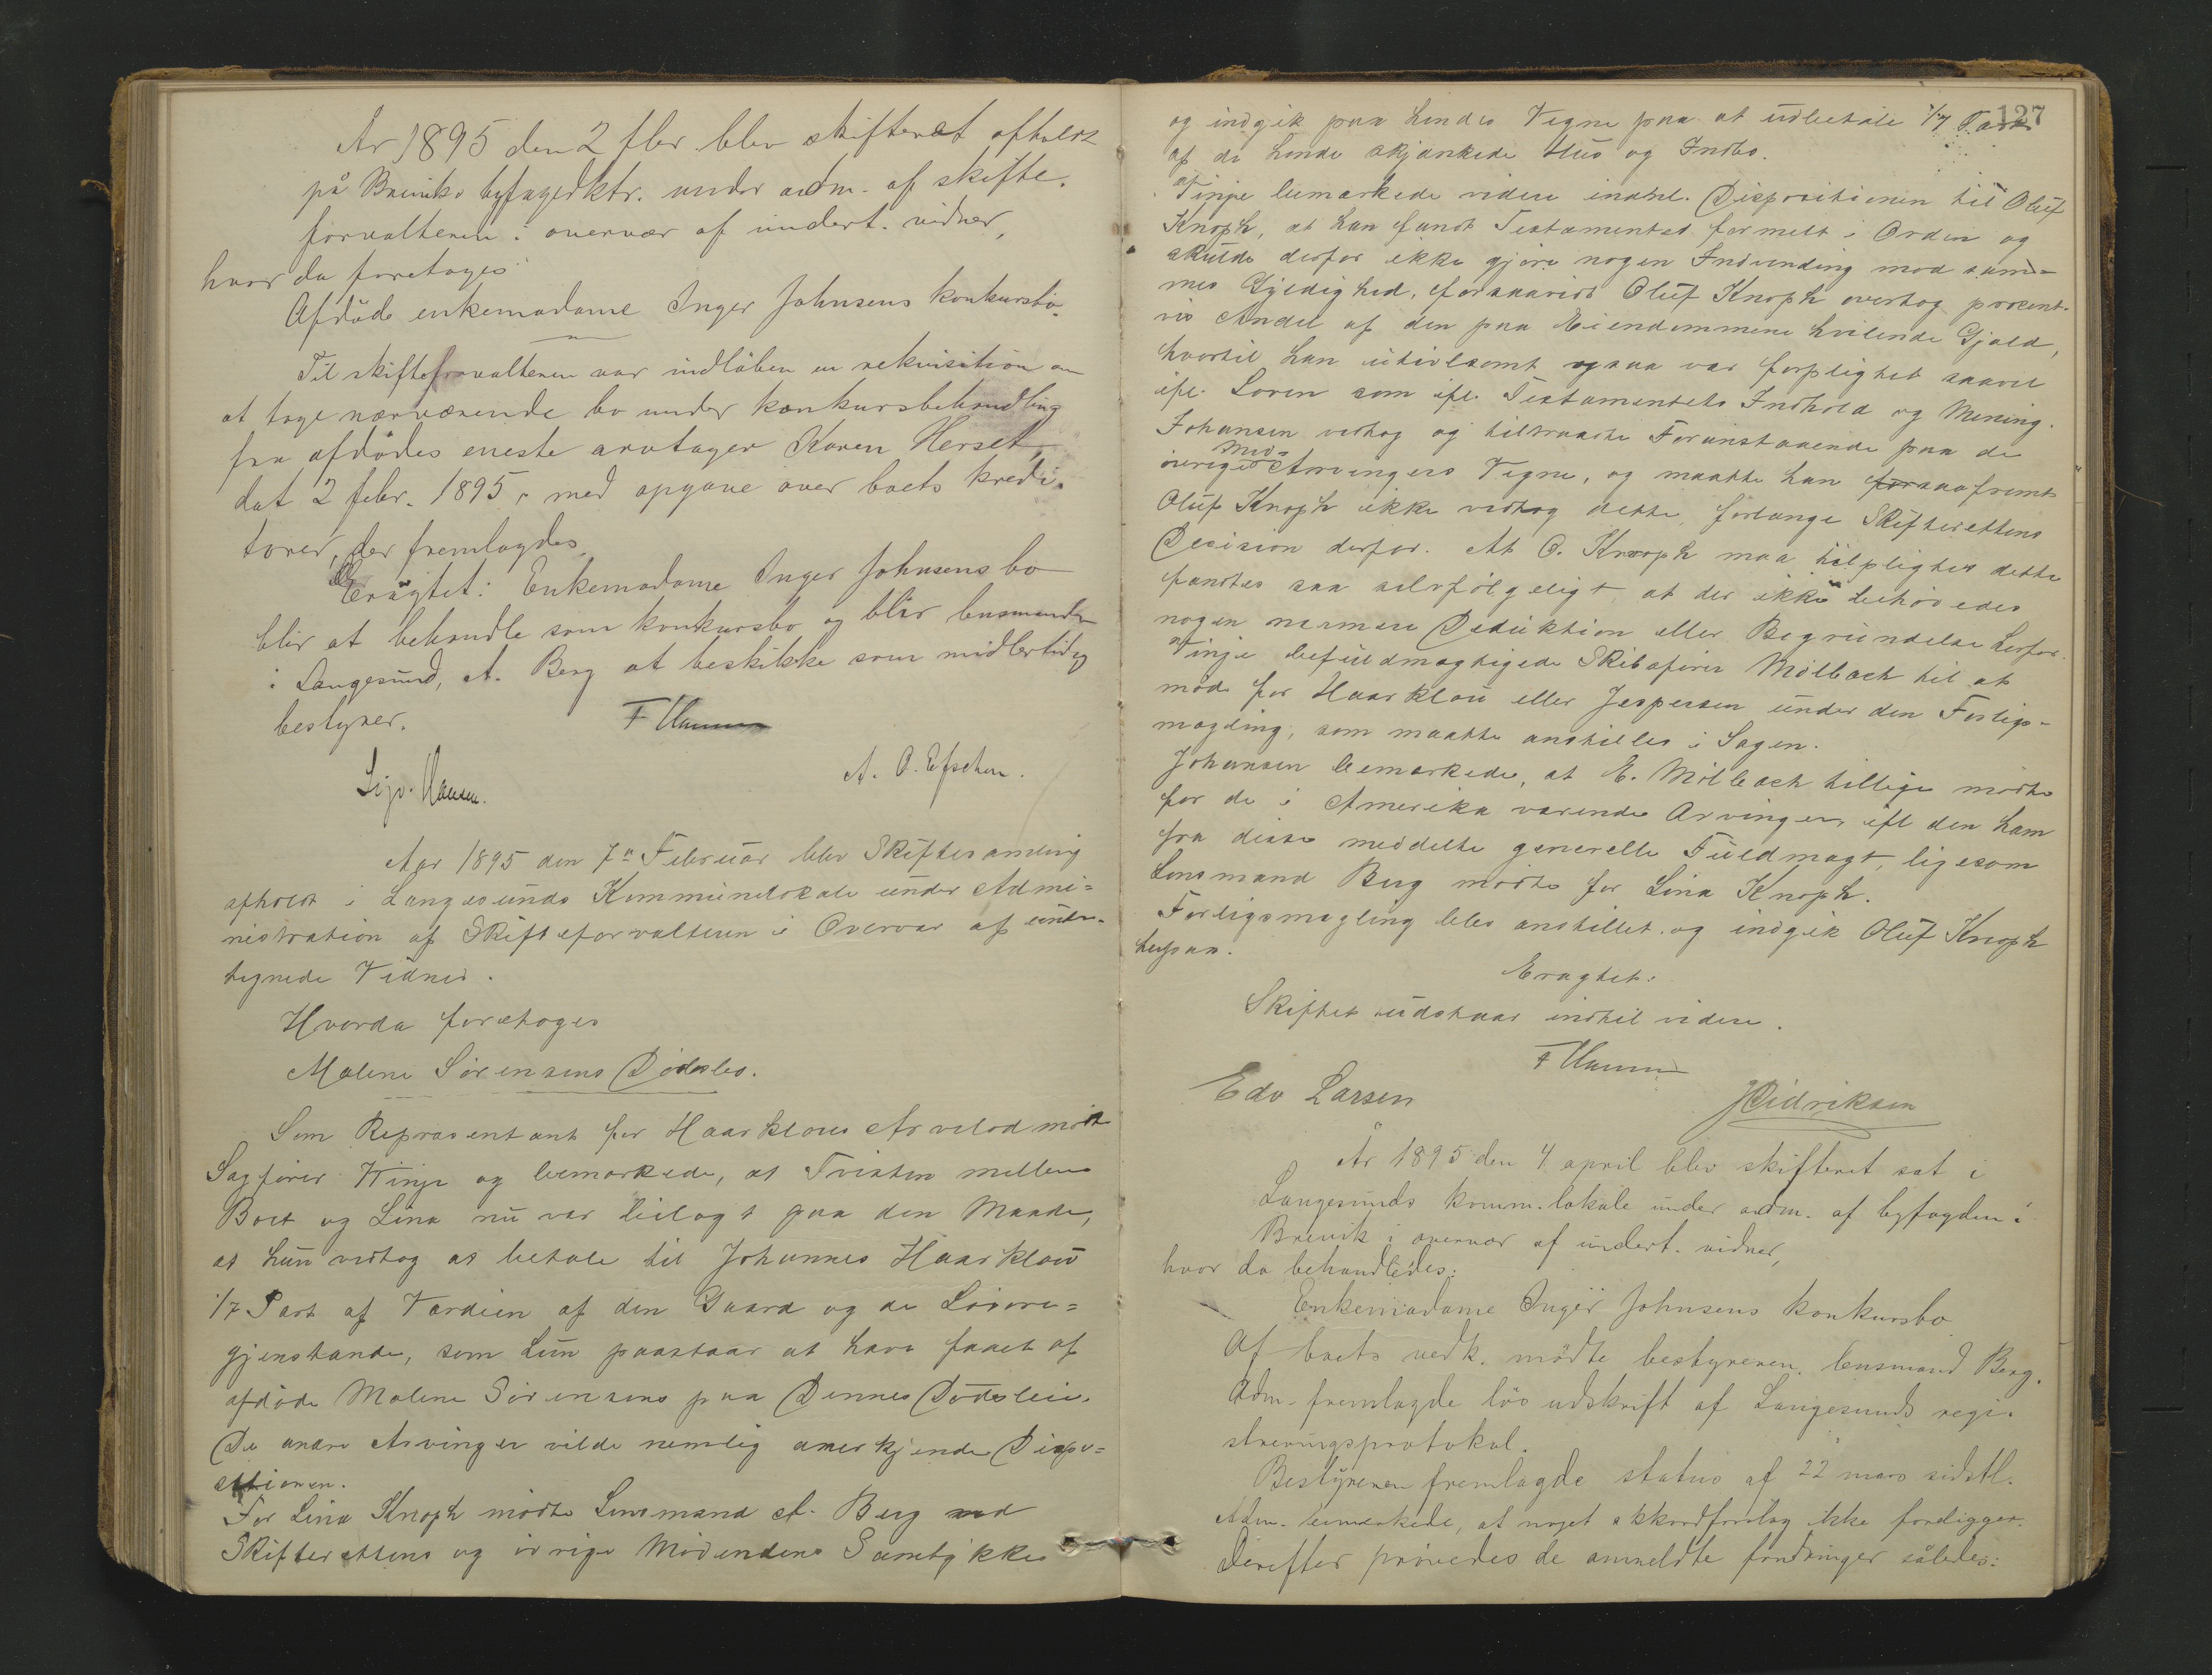 År 1895 den 2 fbr blev skifteret afholdt
på Breviks byfogedktr. under adm. af skifte-
forvalteren i overvær af undert. vidner,
hvor da foretoges
Afdöde enkemadame Inger Johnsens konkursbo.
Til skifteforvalteren var indlöben en rekvisition om
at tage nærværende bo under konkursbehandling
fra afdödes eneste arvtager Karen Herset,
dat 2 febr. 1895, med opgave over boets kredi-
torer, der fremlagdes
Eragtet: Enkemadame Inger Johnsens bo
blir at behandle som konkursbo og blir lensmanden
i Langesund, A. Berg at beskikke som midlertidig
bestyrer.
F Hansen
Sigv. Hansen. A. O. Efschen.
Aar 1895 den 7de Februar blev Skiftesamling
afholdt i Langesunds Kommunelokale under Admi=
nistration af Skifteforvalteren i Overvær af under-
tegnede Vidner.
Hvorda foretoges
Malene Sørensens Dødsbo.
Som Repræsentant for Haarklous Arvelod mødte
Sagfører Winje og bemærkede, at Tvisten mellem
Boet og Lina nu var bilagt paa den Maade,
at hun vedtog at betale til Johannes Haarklou
1/7 Part af Værdien af den Gaard og de Løsøre=
gjenstande, som hun paastaar at have faaet af
afdøde Malene Sørensens paa Dennes Dødsleie.
De andre Arvinger vilde nemlig anerkjende Dispo=
sitionen.
For Lina Knoph mødte Lensmand A. Berg med
Skifterettens og øvrige Mødendens Samtykke
127
og indgik paa hendes Vegne paa at udbetale 1/7 Part
af de hende skjænkede Hus og Indbo.
Winje bemærkede videre indtil. Dispositionen til Oluf
Knoph, at han fandt Testamentet formelt i Orden og
skulde derfor ikke gjøre nogen Indvending mod sam=
mes Gyldighed, forsaavidt Oluf Knoph overtog procent-
vis Andel af den paa Eiendommene hvilende Gjæld,
hvortil han utvivlsomt ogsaa var forpligtet saavel
ifl. Loven som ifl. Testamentets Indhold og Mening.
Johansen vedtog og tiltraadte Foranstaaende paa de
øvriges Med-Arvingers Vegne, og maatte han saafremt
Oluf Knoph ikke vedtog dette, forlange Skifterettens
Decision derfor. At O. Knoph maa tilpligtes dette
fandtes saa selvfølgeligt at der ikke behøvedes
nogen nærmere Deduktion eller Begrundelse herfor.
Winje befuldmægtigede Skibsfører Mølbach til at
møde for Haarklou eller Jespersen under den Forligs-
mægling, som maatte anstilles i Sagen.
Johansen bemærkede, at E. Mølbach tillige mødte
for de i Amerika værende Arvinger, ifl den ham
fra disse meddelte generelle Fuldmagt, ligesom
Lensmand Berg mødte for Lina Knoph.
Forligsmægling blev anstillet og indgik Oluf Knoph
herpaa.
Eragtet:
Skiftet udstaar indtil videre.
F Hansen
Edv Larsen J Didriksen
År 1895 den 4 april blev skifteret sat i
Langesunds komm. lokale under adm. af byfogden i
Brevik i overvær af undert. vidner,
hvor da behandledes:
Enkemadame Inger Johnsens konkursbo
Af boets vedk. mödte bestyreren, lensmand Berg.
Adm. fremlagde lös udskrift af Langesunds regi-
streringsprotokol.
Bestyreren fremlagde status af 22 mars sidstl.
Adm. bemærkede, at noget akkordforslag ikke foreligger.
Derefter prövedes de anmeldte fordringer således: